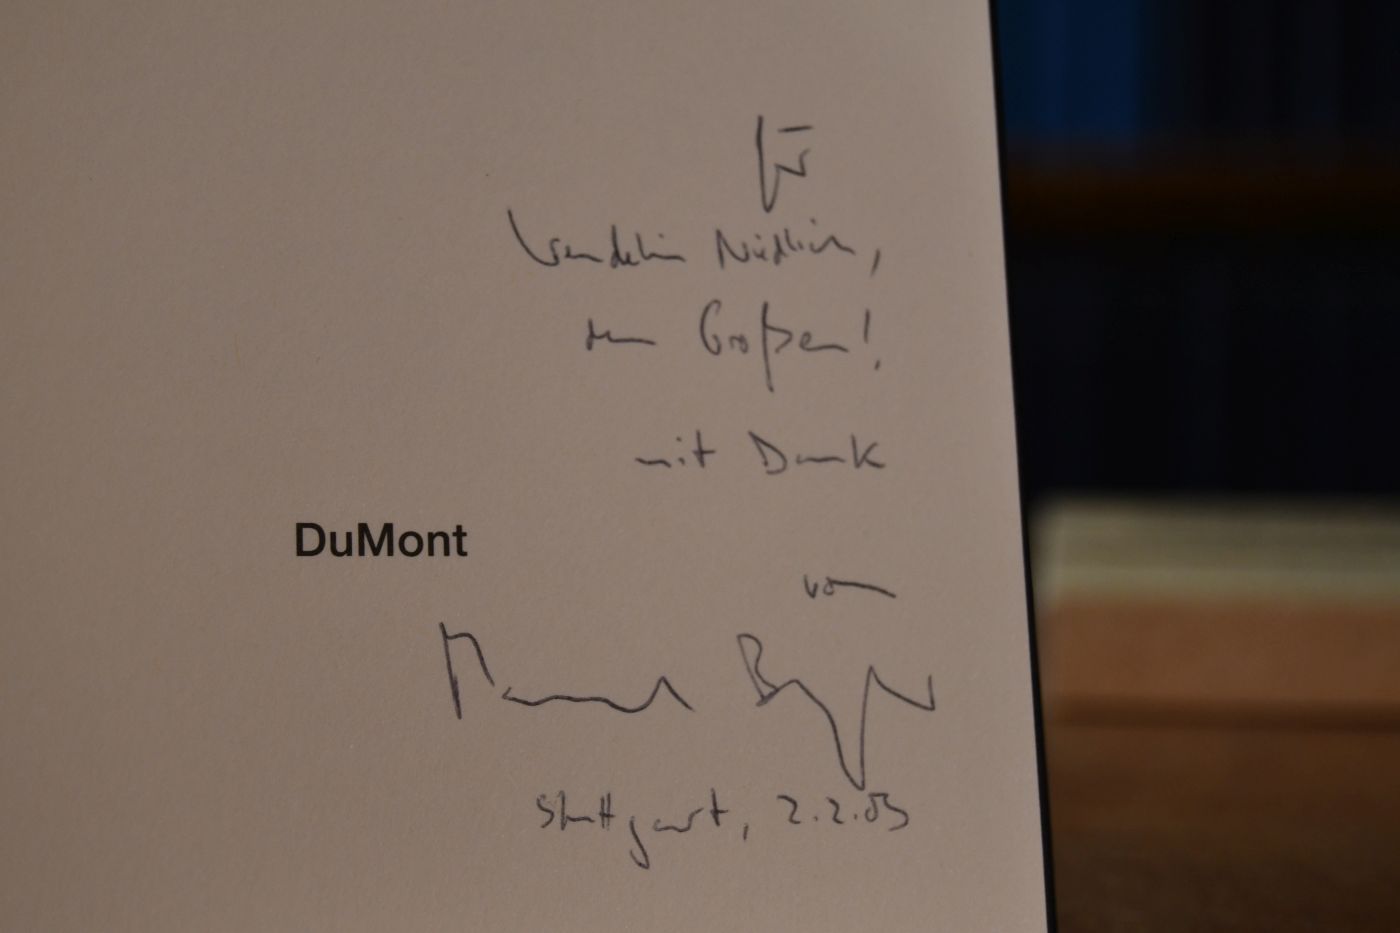 Für
Wendelin Niedlich,
dem Großen!
mit Dank
DuMont
von
Stuttgart, 2.2.03